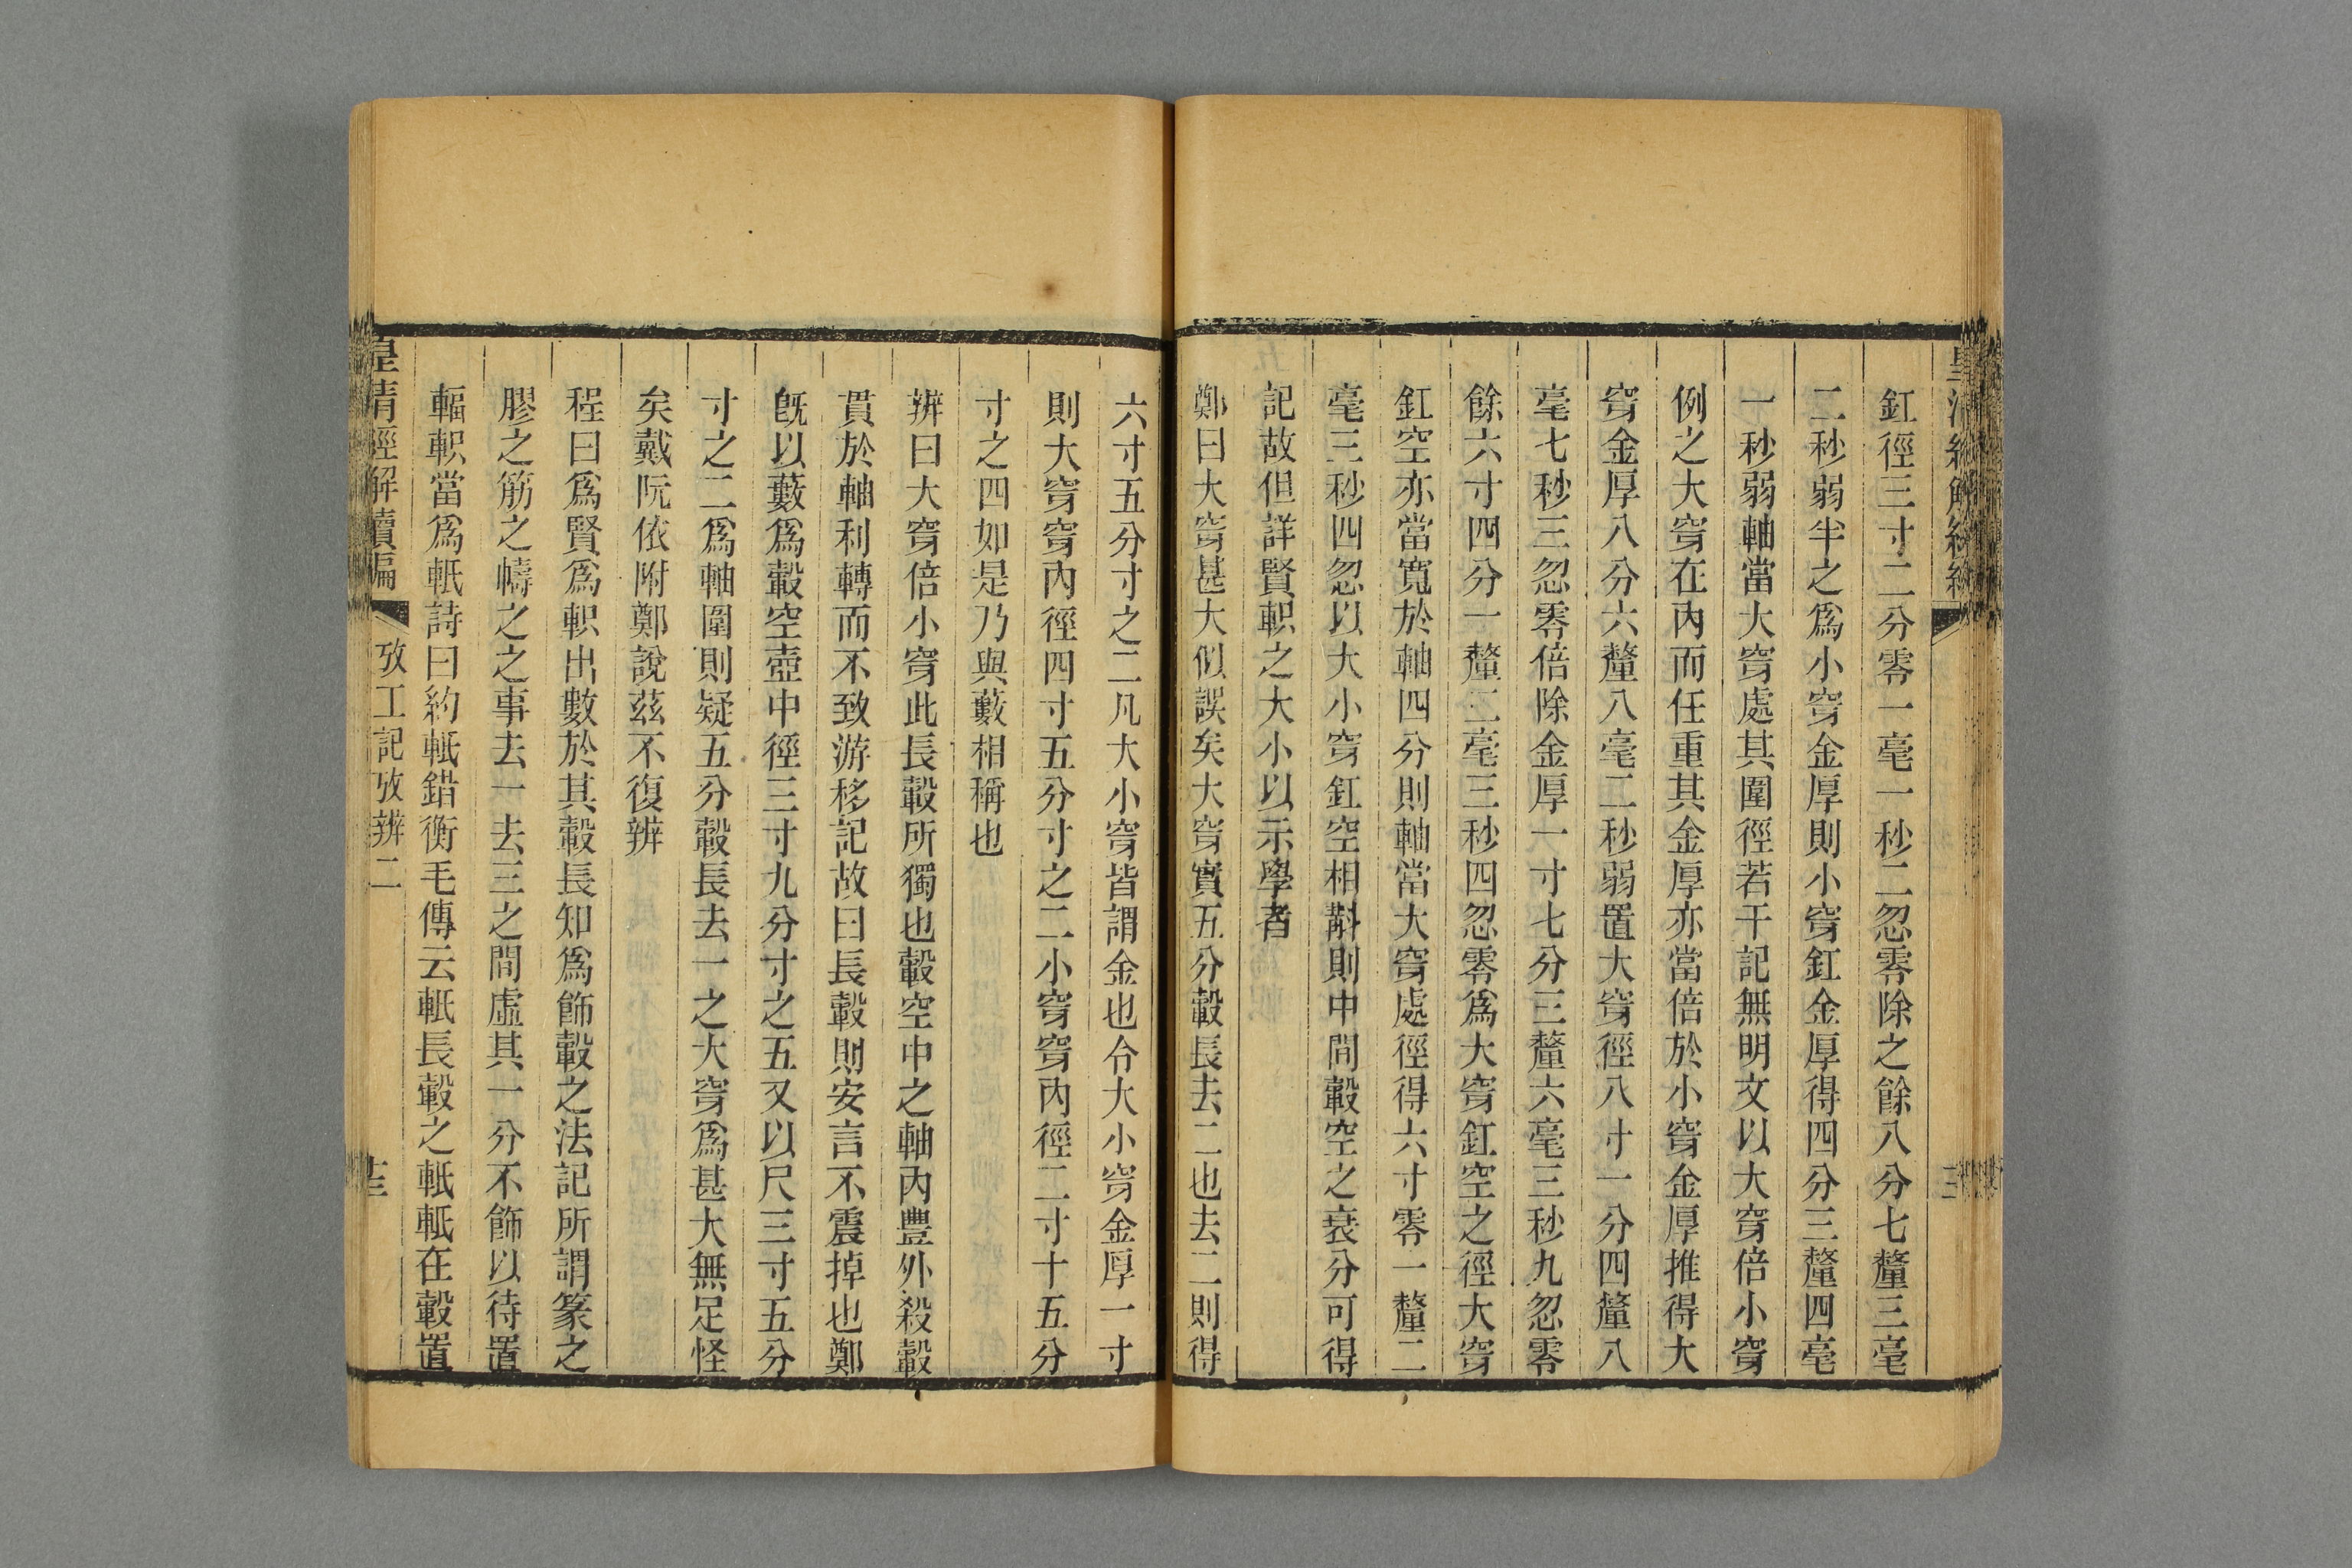 釭徑三寸二分零一毫一秒二忽零除之餘八分七釐三毫
二秒弱半之爲小穿金厚則小穿釭金厚得四分三釐四毫
一秒弱軸當大穿處其圍徑若干記無明文以大穿倍小穿
例之大穿在內而任重其金厚亦當倍於小穿金厚推得大
穿金厚八分六釐八毫二秒弱置大穿徑八寸一分四釐八
毫七秒三忽零倍除金厚一寸七分三釐六毫三秒九忽零
餘六寸四分一釐二毫三秒四忽零爲大穿釭空之徑大穿
釭空亦當寬於軸四分則軸當大穿處徑得六寸零一釐二
毫三秒四忽以大小穿釭空相斠則中閒轂空之衰分可得
記故但詳賢軹之大小以示學者
鄭曰大穿甚大似誤矣大穿實五分轂長去二也去二則得
六寸五分寸之二凡大小穿皆謂金也今大小穿金厚一寸
則大穿穿內徑四寸五分寸之二小穿穿內徑二寸十五分
寸之四如是乃與藪相稱也
辨曰大穿倍小穿此長轂所獨也轂空中之軸內豐外殺轂
貫於軸利轉而不致游移記故曰長轂則安言不震掉也鄭
旣以藪爲轂空壺中徑三寸九分寸之五又以尺三寸五分
寸之二爲軸圍則疑五分轂長去一之大穿爲甚大無足怪
矣戴阮依附鄭說茲不復辨
程曰爲賢爲軹出數於其轂長知爲飾轂之法記所謂篆之
膠之筋之幬之之事去一去三之閒虛其一分不飾以待置
輻軹當爲軝詩曰約軝錯衡毛傳云軝長轂之軝軝在轂置
皇清經解續編
攷工記攷辨二